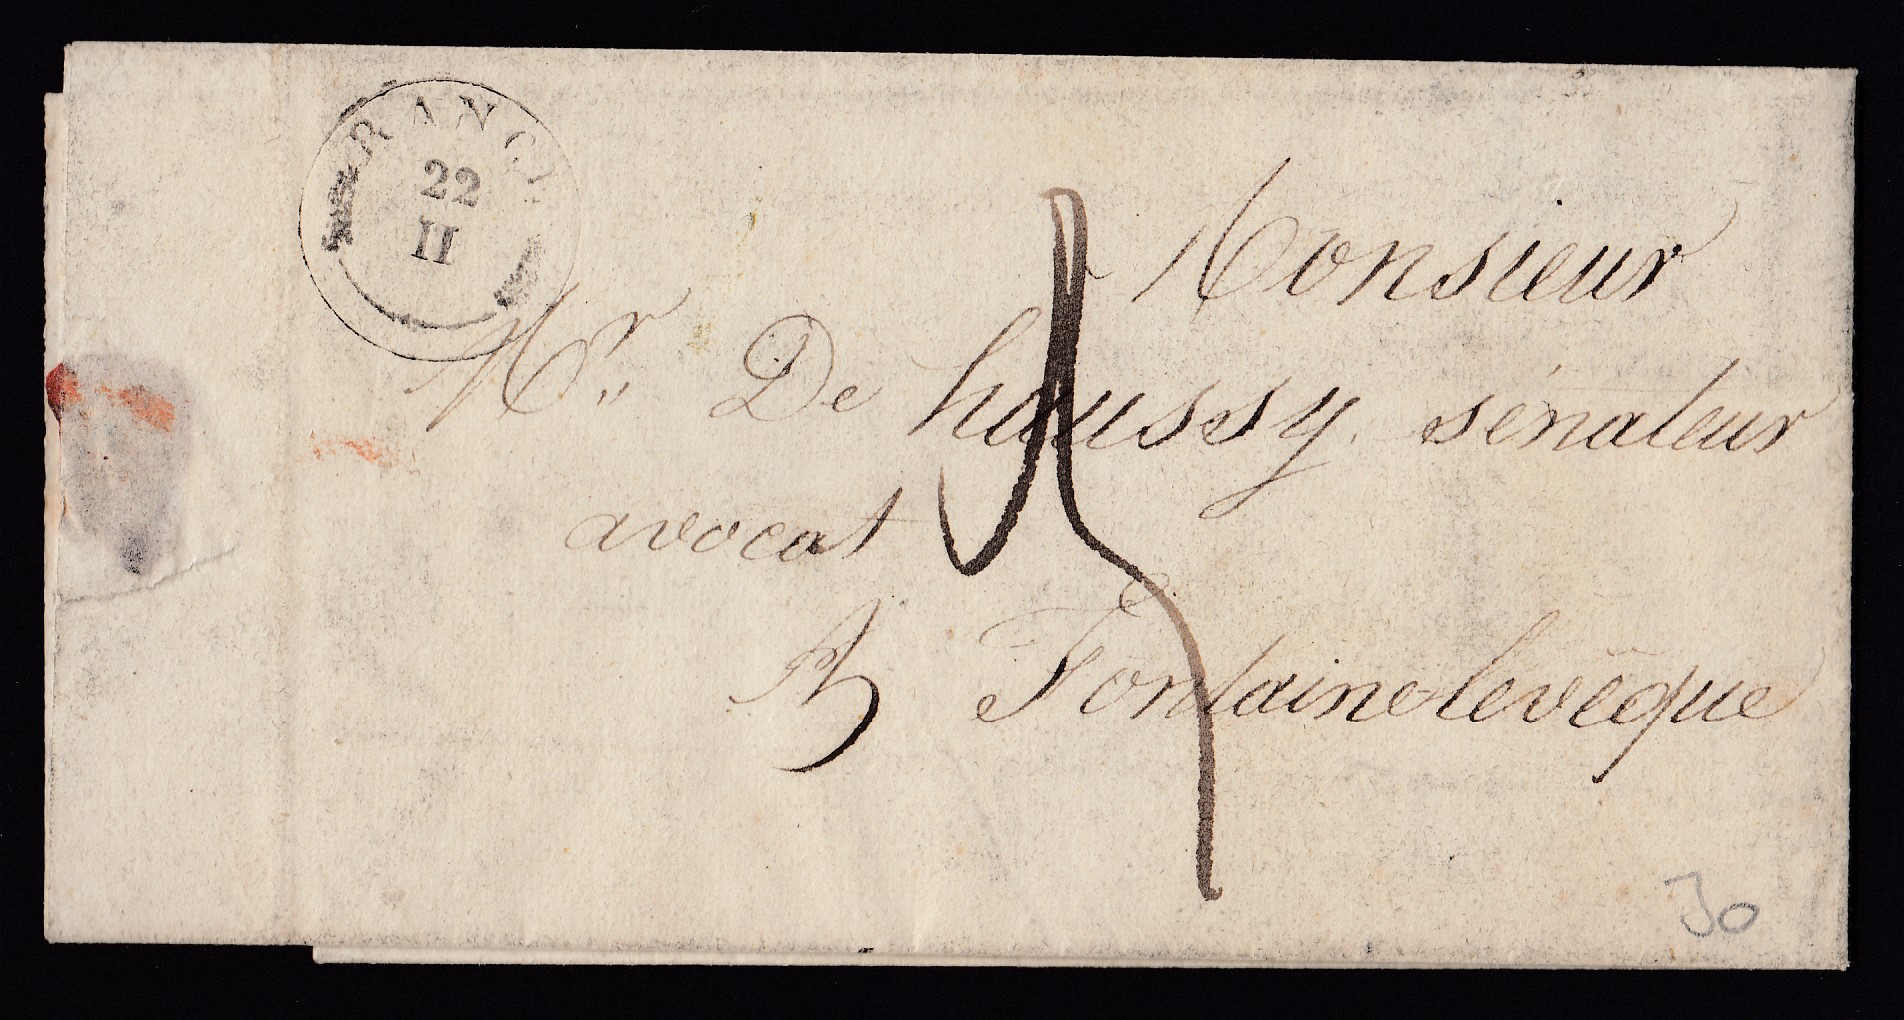 RANC
22
II
Monsieur
Mr De haussy sénateur
avocat
à Fontainelevêque
30